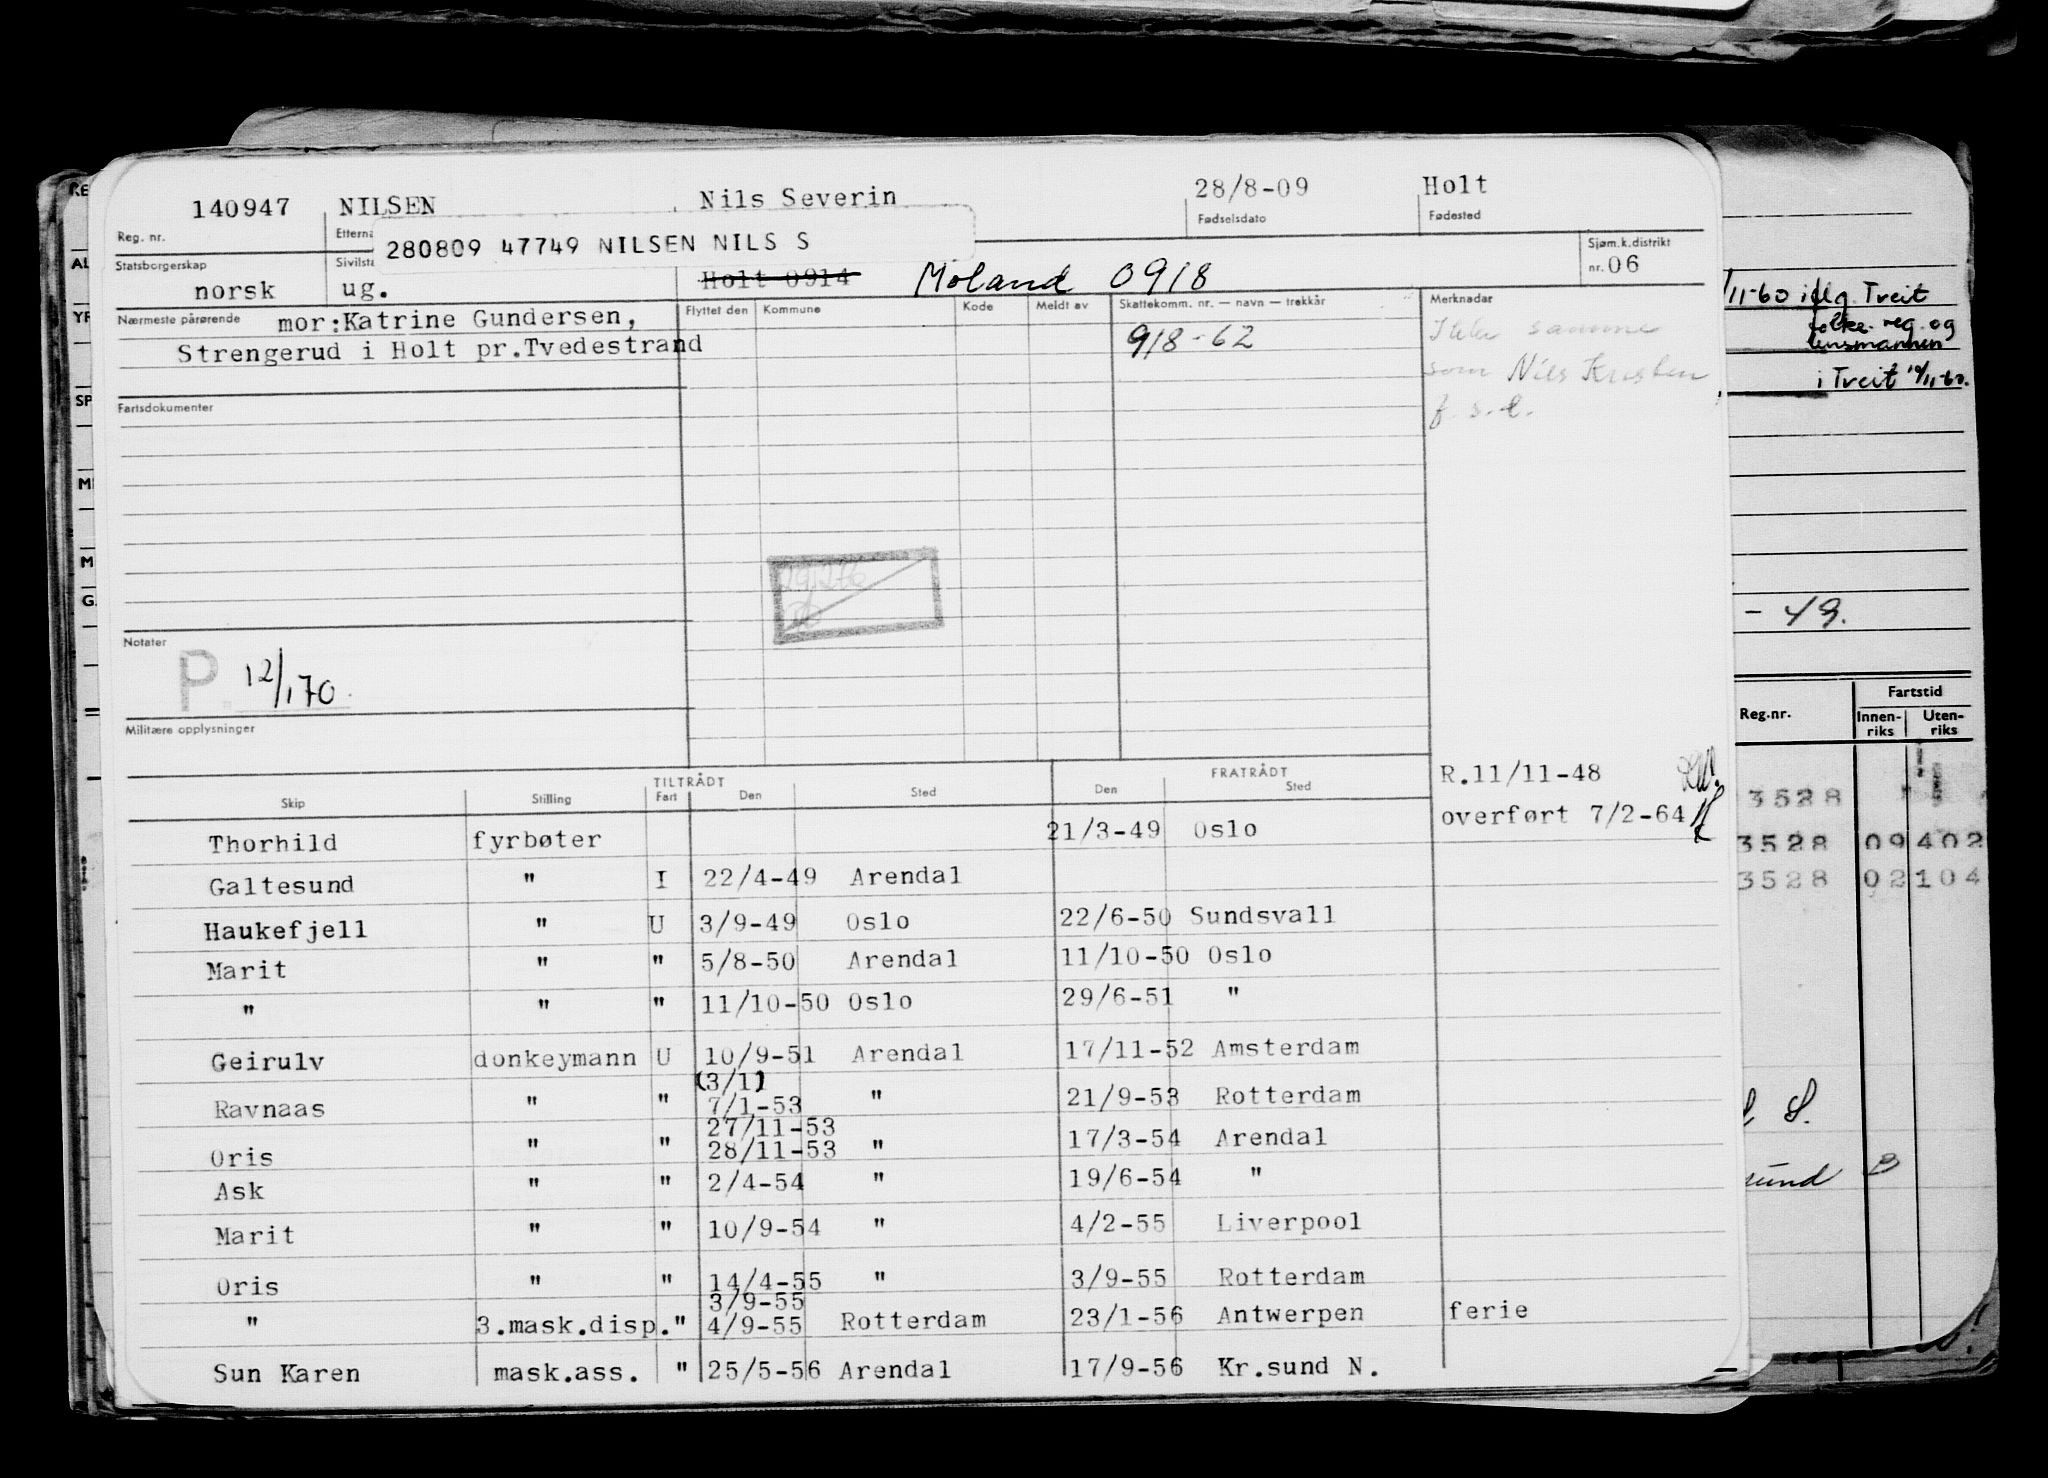 140947 NILSEN Nils Severin 28/8-09 Holt
Reg. nr. Etterna Fødselsdato Fødested
280809 47749 NILSEN NILS S
Statsborgerskap Sivilsta Sjøm.k.distrikt
norsk ug. Holt 0914 Moland 0918 nr. 06
Nærmeste pårørende mor:Katrine Gundersen,
Strengerud i Holt pr.Tvedestrand
Flyttet den Kommune Kode Meldt av Skattekomm. nr. — navn — trekkår Merknader
918-62
samme
som Nils Kristen
f. s.d.
Fartsdokumenter
Notater
P 12/1 70
Militære opplysninger
R.11/11-48
overført 7/2-64
TILTRÅDT FRATRÅDT
Skip Stilling Fart Den Sted Den Sted
Thorhild fyrbøter 21/3-49 Oslo
Galtesund " I 22/4-49 Arendal
Haukefjell " U 3/9-49 Oslo 22/6-50 Sundsvall
Marit " " 5/8-50 Arendal 11/10-50 Oslo
" " " 11/10-50 Oslo 29/6-51 "
Geirulv donkeymann U 10/9-51 Arendal 17/11-52 Amsterdam
(3/1)
Ravnaas " " 7/1-53 " 21/9-53 Rotterdam
27/11-53
Oris " " 28/11-53 " 17/3-54 Arendal
Ask " " 2/4-54 " 19/6-54 "
Marit " " 10/9-54 " 4/2-55 Liverpool
Oris " " 14/4-55 " 3/9-55 Rotterdam
3/9-55
" 3.mask.disp. " 4/9-55 Rotterdam 23/1-56 Antwerpen ferie
Sun Karen mask.ass. " 25/5-56 Arendal 17/9-56 Kr.sund N.
RE
AL
SP
G
/11-60 Treit
reg. og
lensmannen
i Treit
- 49.
Fartstid
Reg.nr. Innen-riks Uten-riks
3528
3528 09 402
3528 02 104
S.
sund B